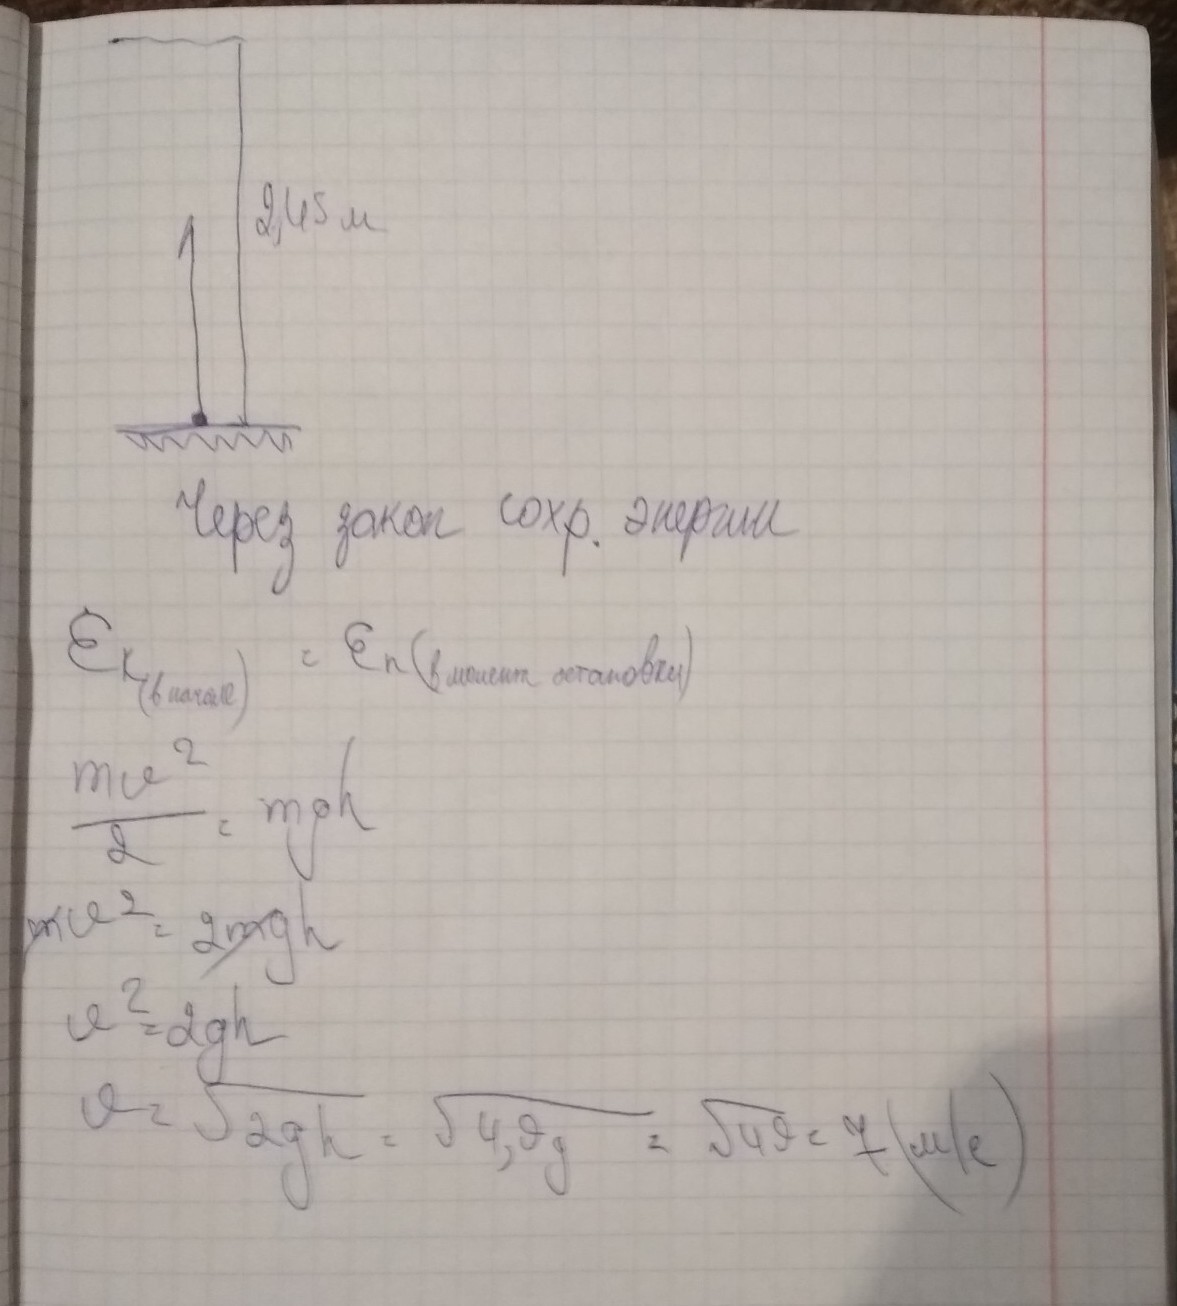 2,45 м
Через закон сохр. энергии
Eк(в начале) = Eп(в момент остановки)
mv²/2 = mgh
mv² = 2mgh
v² = 2gh
v = √2gh = √4,9g = √49 = 7 (м/с)